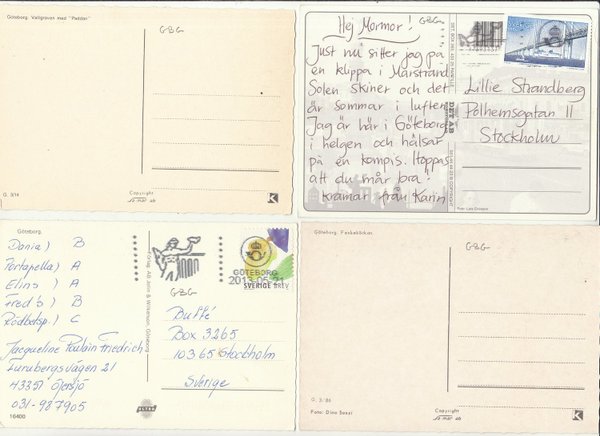 Göteborg. Vallgraven med "Paddan"
GBG
G 3/14
Copyright
K
Hej Mormor!
GBG
Just nu sitter jag på
en klippa i Marstrand
Solen skiner och det
är sommar i luften
Jag är här i Göteborg
i helgen och hälsar
på en kompis. Hoppas
att du mår bra!
Kramar från Karin
DET AB
Lillie Strandberg
Polhemsgatan 11
Stockholm
Göteborg.
Dania) B
Portapella) A
Elins) A
Fred's) B
Rödbetsp.) C
Jacqueline Poulain Friedrich
Furubergsvägen 21
43351 Öjersjö
031-987905
16400
ULTRA
GÖTEBORG
2013-05-21
SVERIGE BREV
GBG
Buffé
Box 3265
10365 Stockholm
Sverige
Göteborg. Feskekörkan.
GBG
G. 3/86
Foto:
Copyright
K